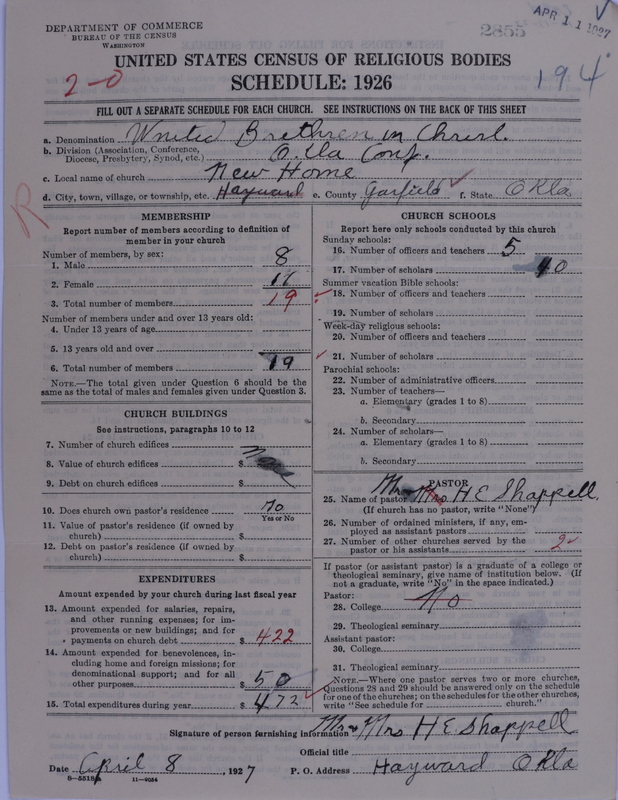 DEPARTMENT OF COMMERCE
BUREAU OF THE CENSUS
WASHINGTON
2855
APR 11 1927
UNITED STATES CENSUS OF RELIGIOUS BODIES
2-0
SCHEDULE: 1926
194
FILL OUT A SEPARATE SCHEDULE FOR EACH CHURCH. SEE INSTRUCTIONS ON THE BACK OF THIS SHEET
a. Denomination United Brethren in Christ.
b. Division (Association, Conference, Diocese, Presbytery, Synod, etc.) Okla Conf.
c. Local name of church New Home
d. City, town, village, or township, etc. Hayward e. County Garfield f. State Okla
R
MEMBERSHIP
Report number of members according to definition of
member in your church
Number of members, by sex:
1. Male 8
2. Female 11
3. Total number of members 19
Number of members under and over 13 years old:
4. Under 13 years of age
5. 13 years old and over
6. Total number of members 19
NOTE.—The total given under Question 6 should be the
same as the total of males and females given under Question 3.
CHURCH BUILDINGS
See instructions, paragraphs 10 to 12
7. Number of church edifices
8. Value of church edifices $ None
9. Debt on church edifices $
10. Does church own pastor's residence No
Yes or No
11. Value of pastor's residence (if owned by
church) $
12. Debt on pastor's residence (if owned by
church) $
EXPENDITURES
Amount expended by your church during last fiscal year
13. Amount expended for salaries, repairs,
and other running expenses; for im-
provements or new buildings; and for
payments on church debt $ 422
14. Amount expended for benevolences, in-
cluding home and foreign missions; for
denominational support; and for all
other purposes $ 50
15. Total expenditures during year $ 472
CHURCH SCHOOLS
Report here only schools conducted by this church
Sunday schools:
16. Number of officers and teachers 5
17. Number of scholars 40
Summer vacation Bible schools:
18. Number of officers and teachers
19. Number of scholars
Week-day religious schools:
20. Number of officers and teachers
21. Number of scholars
Parochial schools:
22. Number of administrative officers
23. Number of teachers—
a. Elementary (grades 1 to 8)
b. Secondary
24. Number of scholars—
a. Elementary (grades 1 to 8)
b. Secondary
PASTOR
25. Name of pastor Mr Mrs H E Shappell
(If church has no pastor, write "None")
26. Number of ordained ministers, if any, em-
ployed as assistant pastors
27. Number of other churches served by the
pastor or his assistants 2
If pastor (or assistant pastor) is a graduate of a college or
theological seminary, give name of institution below. (If
not a graduate, write "No" in the space indicated.)
Pastor:
28. College No
29. Theological seminary
Assistant pastor:
30. College
31. Theological seminary
NOTE.—Where one pastor serves two or more churches,
Questions 28 and 29 should be answered only on the schedule
for one of the churches; on the schedules for the other churches,
write "See schedule for church."
Signature of person furnishing information Mr Mrs H E Shappell
Official title
Date April 8, 1927 P. O. Address Hayward Okla
8-5518a 11-9054